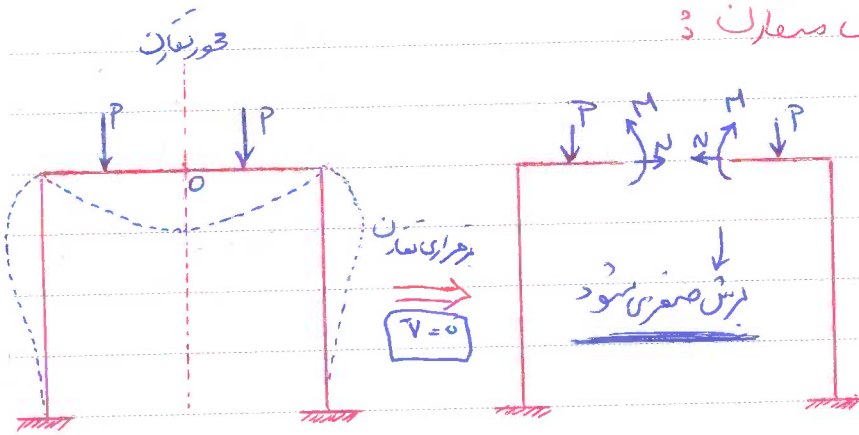 متقارن :
محور تقارن
P P
O
برقراری تقارن
V = 0
P M N N M P
برش صفر می‌شود